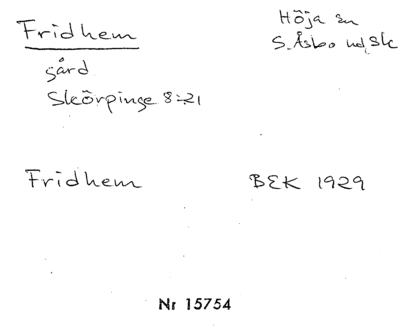 Fridhem
Höja sn
S. Åsbo hd, Sk
gård
Skörpinge 8:21
Fridhem
BEK 1929
Nr 15754